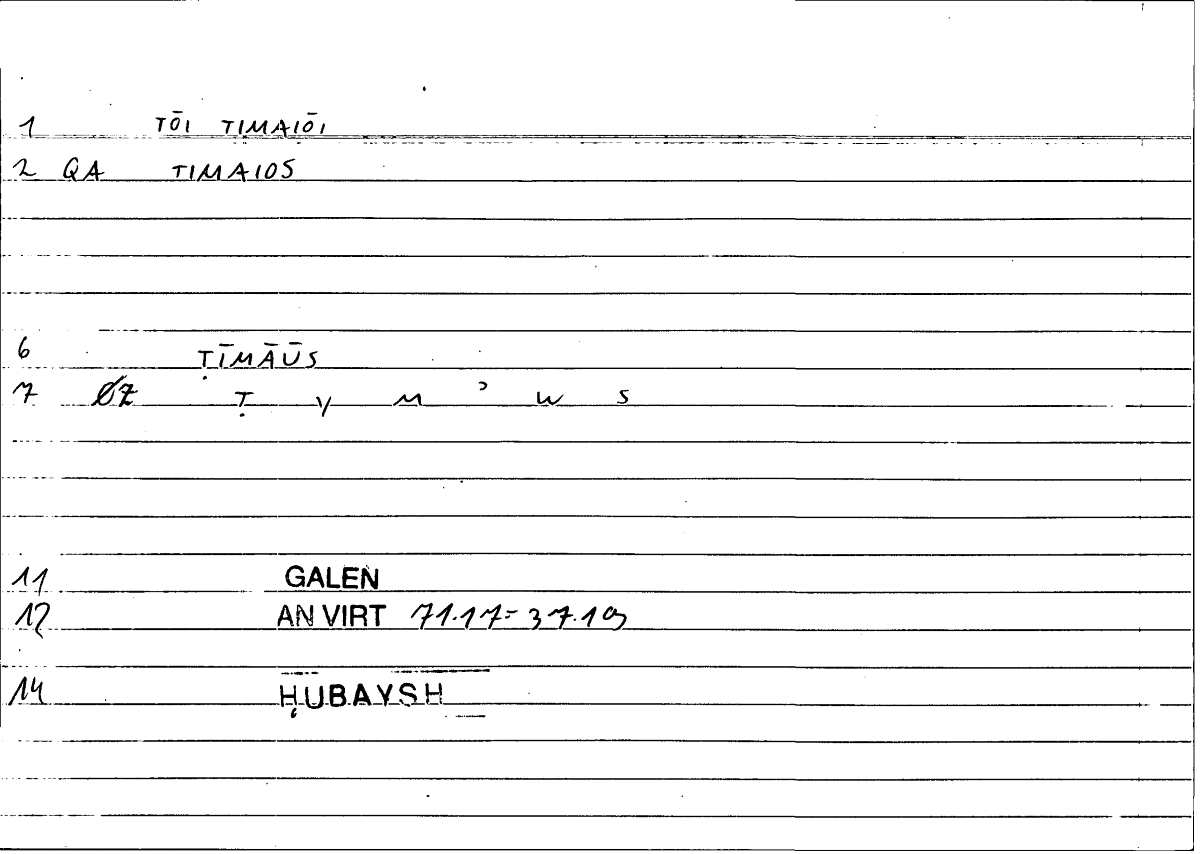 1 TŌI TIMAIŌI
2 QA TIMAIOS
6 ṬĪMĀŪS
7 ØZ Ṭ Y M ʾ W S
11 GALEN
12 AN VIRT 71.17=37.19
14 ḤUBAYSH